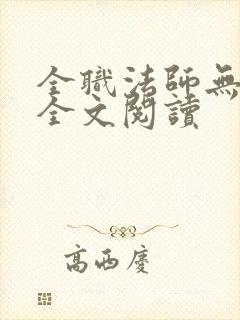 全職法師無
全文閱讀
高西慶